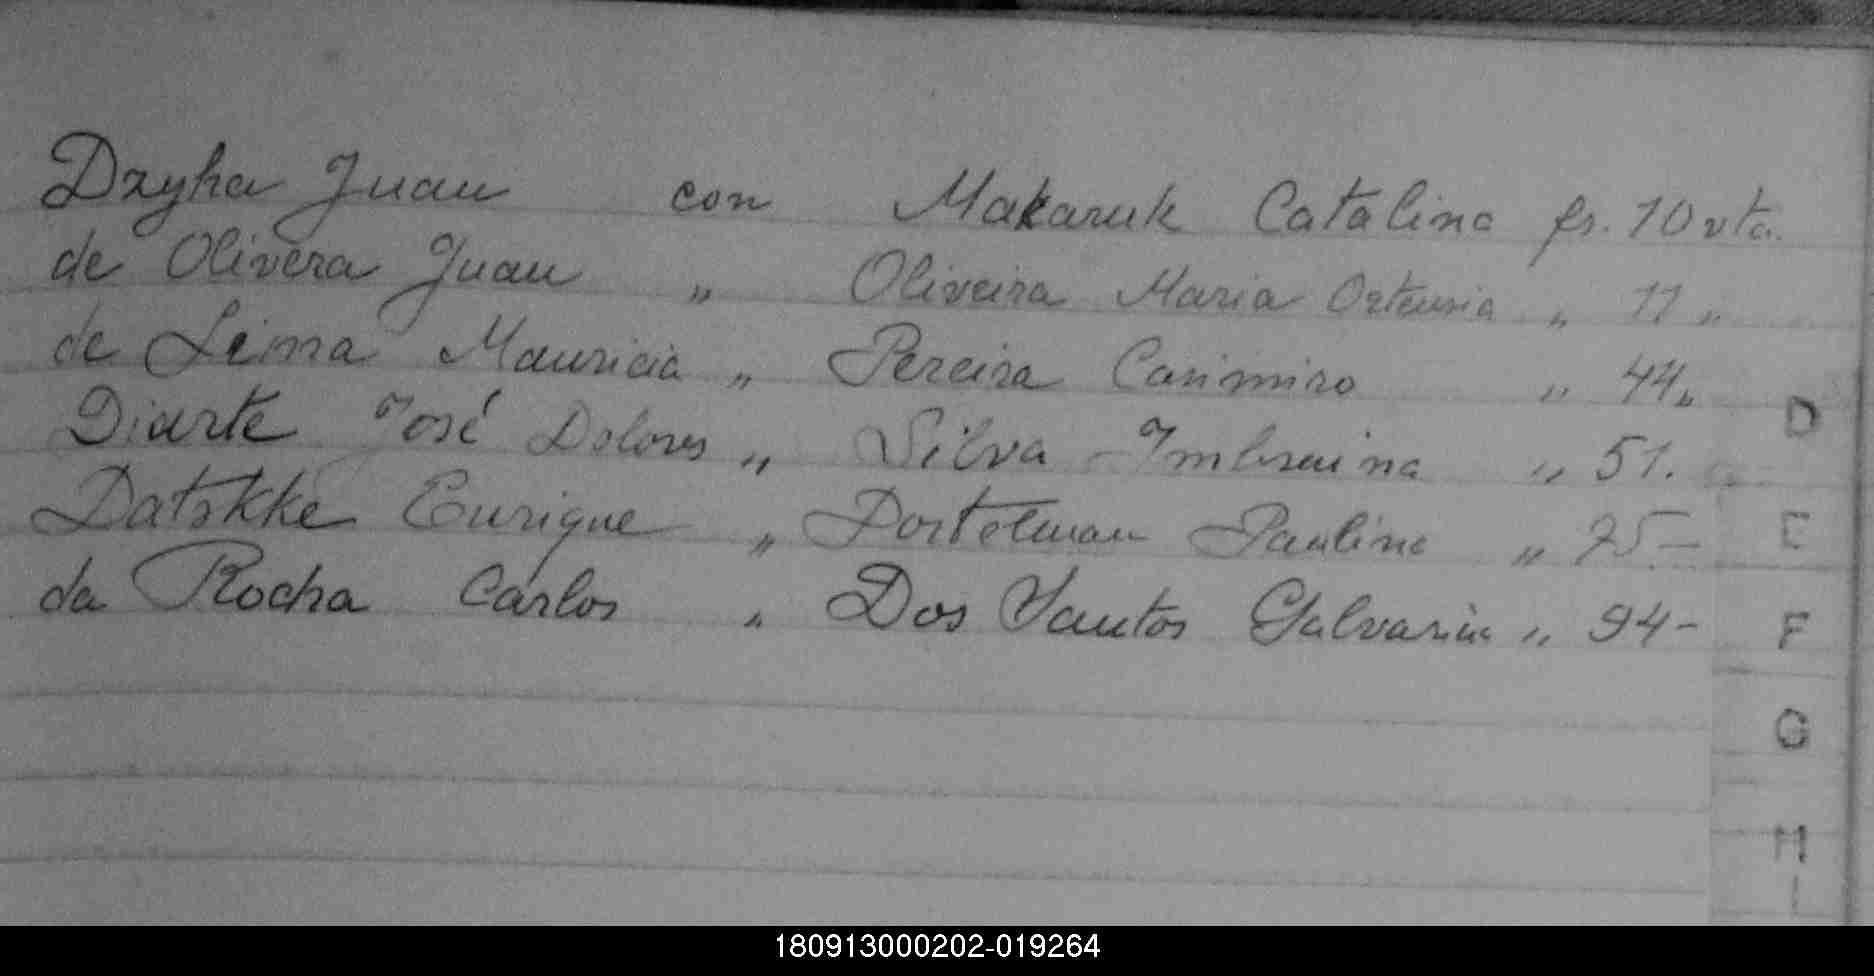 Dzyha Juan con Makaruk Catalina fs. 10 vta.
de Olivera Juan " Oliveira Maria Ortensia " 11 "
de Lima Mauricia " Pereira Casimiro " 44 "
Diarte José Dolores " Silva Imbraina " 51.
D
Datskke Enrique " Portelman Paulina " 75 —
E
da Rocha Carlos " Dos Santos Galvarin " 94 -
F
G
H
I
180913000202-019264